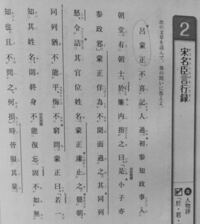 2 宋名臣言行録
人物評
次の文章を読んで、後の問いに答えよ。
呂蒙正不喜記人過。初参知政事、入
朝堂、有朝士於簾内指之曰、「是小子亦
参政邪。」蒙正佯為不聞而過之。其同列
怒令詰其官位姓名。蒙正遽止之。罷朝、
同列猶不能平、悔不窮問。蒙正曰、「若一
知其姓名、則終身不能復忘。固不如無
知也。且不問之、何損。」時皆服其量。